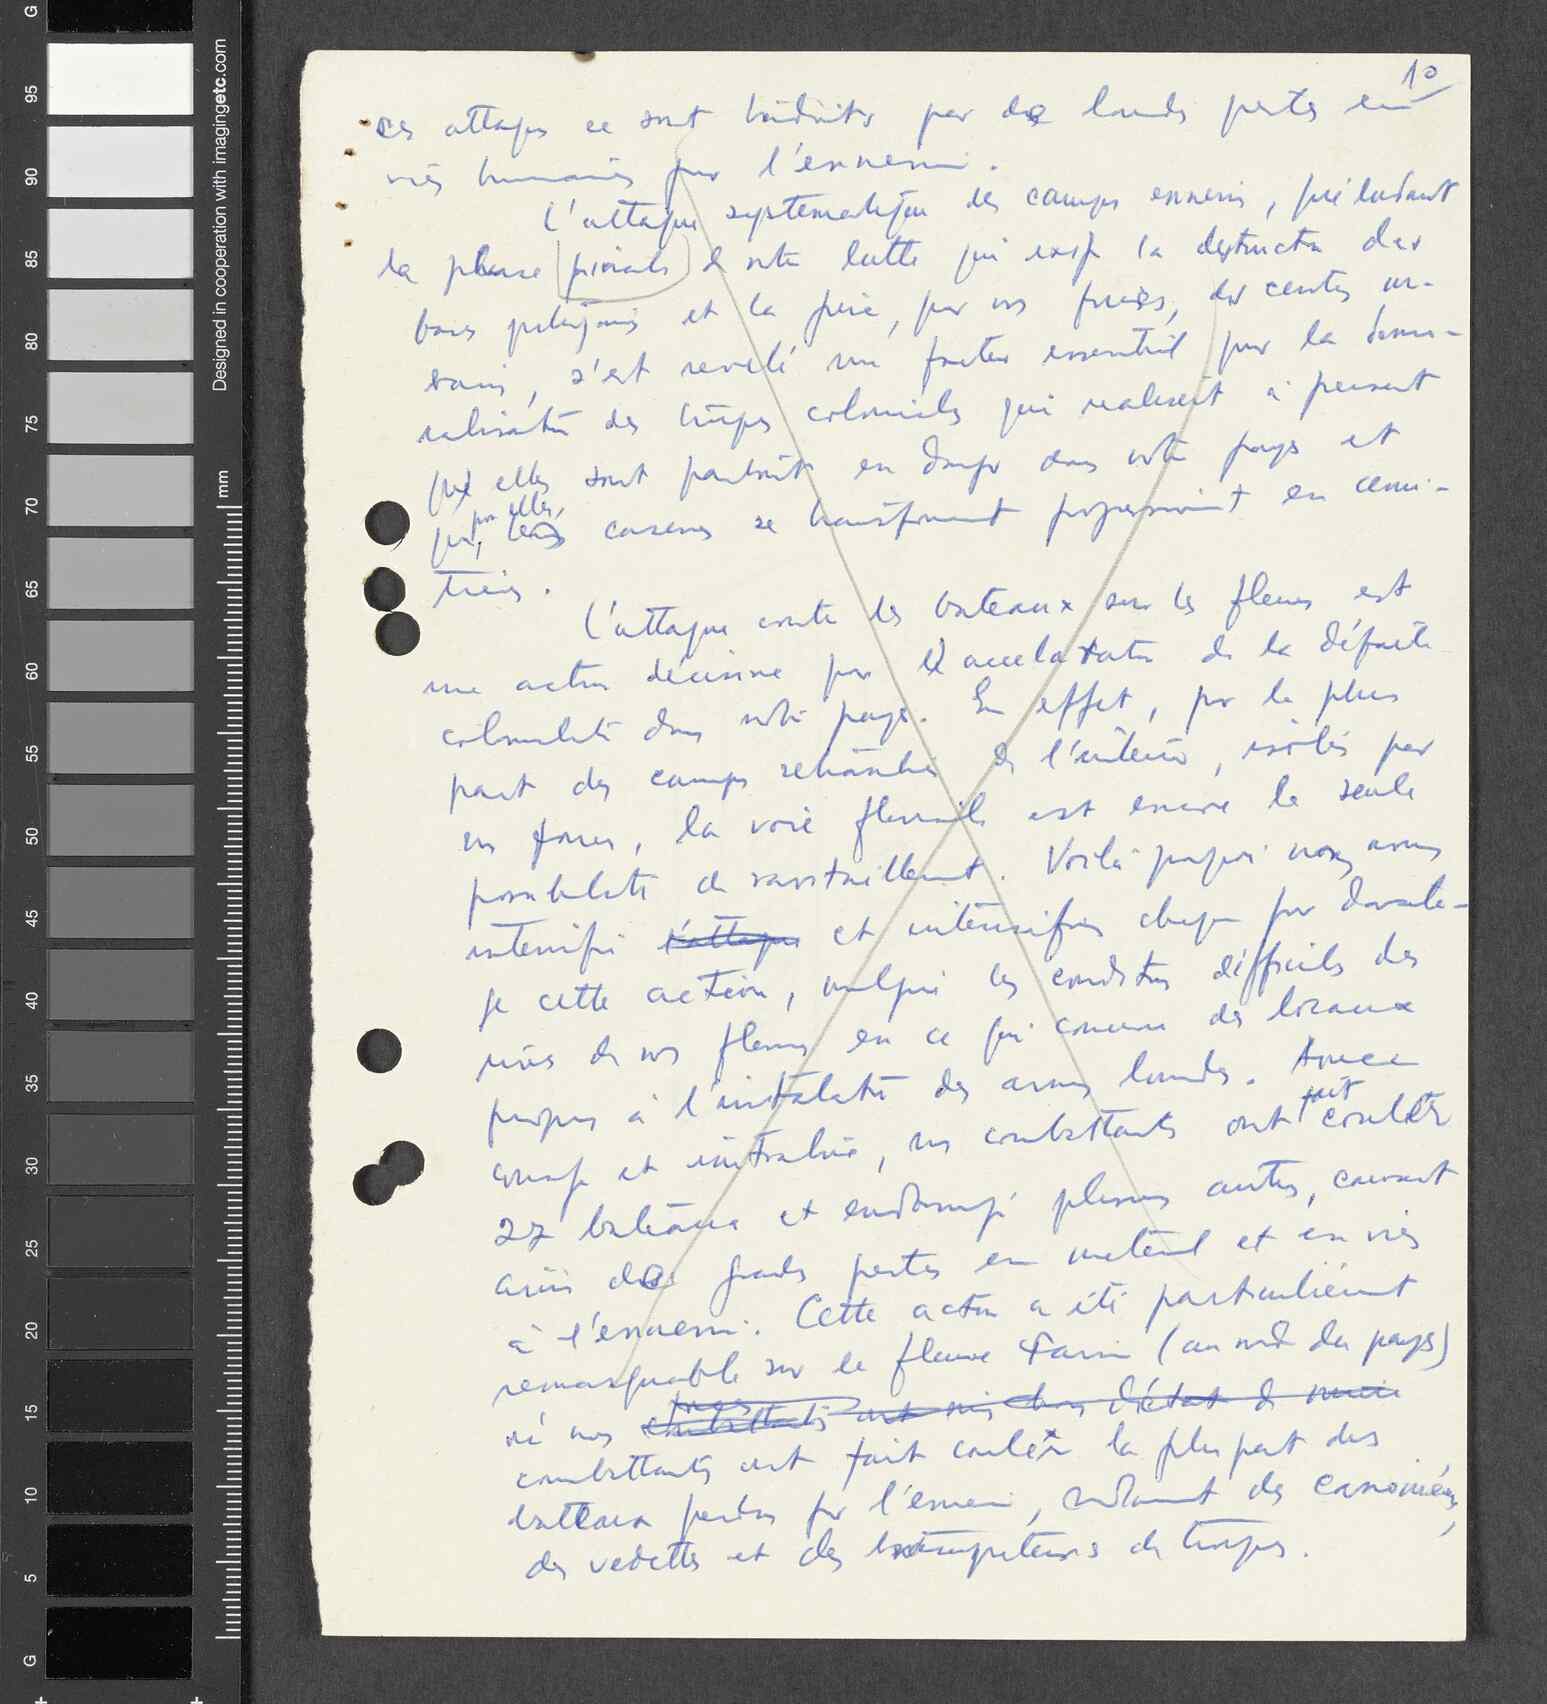 10
ces attaques se sont traduites par de lourdes pertes en
vies humaines pour l'ennemi.
L'attaque systématique des camps ennemis, préludant
la phase de notre lutte qui exige la destruction des
bases portugaises et la prise, par nos forces, des centres ur-
bains, s'est revelé un facteur essentiel pour la demo-
ralisation des troupes coloniales qui realisent à present
qu'elles sont partout en danger dans notre pays et
que, pour elles, leurs casernes se transforment progressivement en cime-
tières.
L'attaque contre les bateaux sur les fleuves est
une action décisive pour l'acceleration de la défaite
colonialiste dans notre pays. En effet, pour la plus
part des camps retranchés de l'intérieur, isolés par
nos forces, la voie fluviale est encore la seule
possibilité de ravitaillement. Voilà pourquoi nous avons
intensifié l'attaque et intensifions chaque jour davanta-
ge cette action, malgré les conditions difficiles des
rives de nos fleuves en ce qui concerne des locaux
propres à l'installation des armes lourdes. Avec
courage et , nos combattants ont fait couler
27 bateaux et endommagé plusieurs autres, causant
ainsi de grandes pertes en matériel et en vies
à l'ennemi. Cette action a été particulièrement
remarquable sur le fleuve Farim (au nord du pays)
où nos forces combattants ont mis hors d'état de nuire
combattants ont fait couler la plus part des
bateaux perdus par l'ennemi, notamment des canonnières,
des vedettes et des transporteurs de troupes.